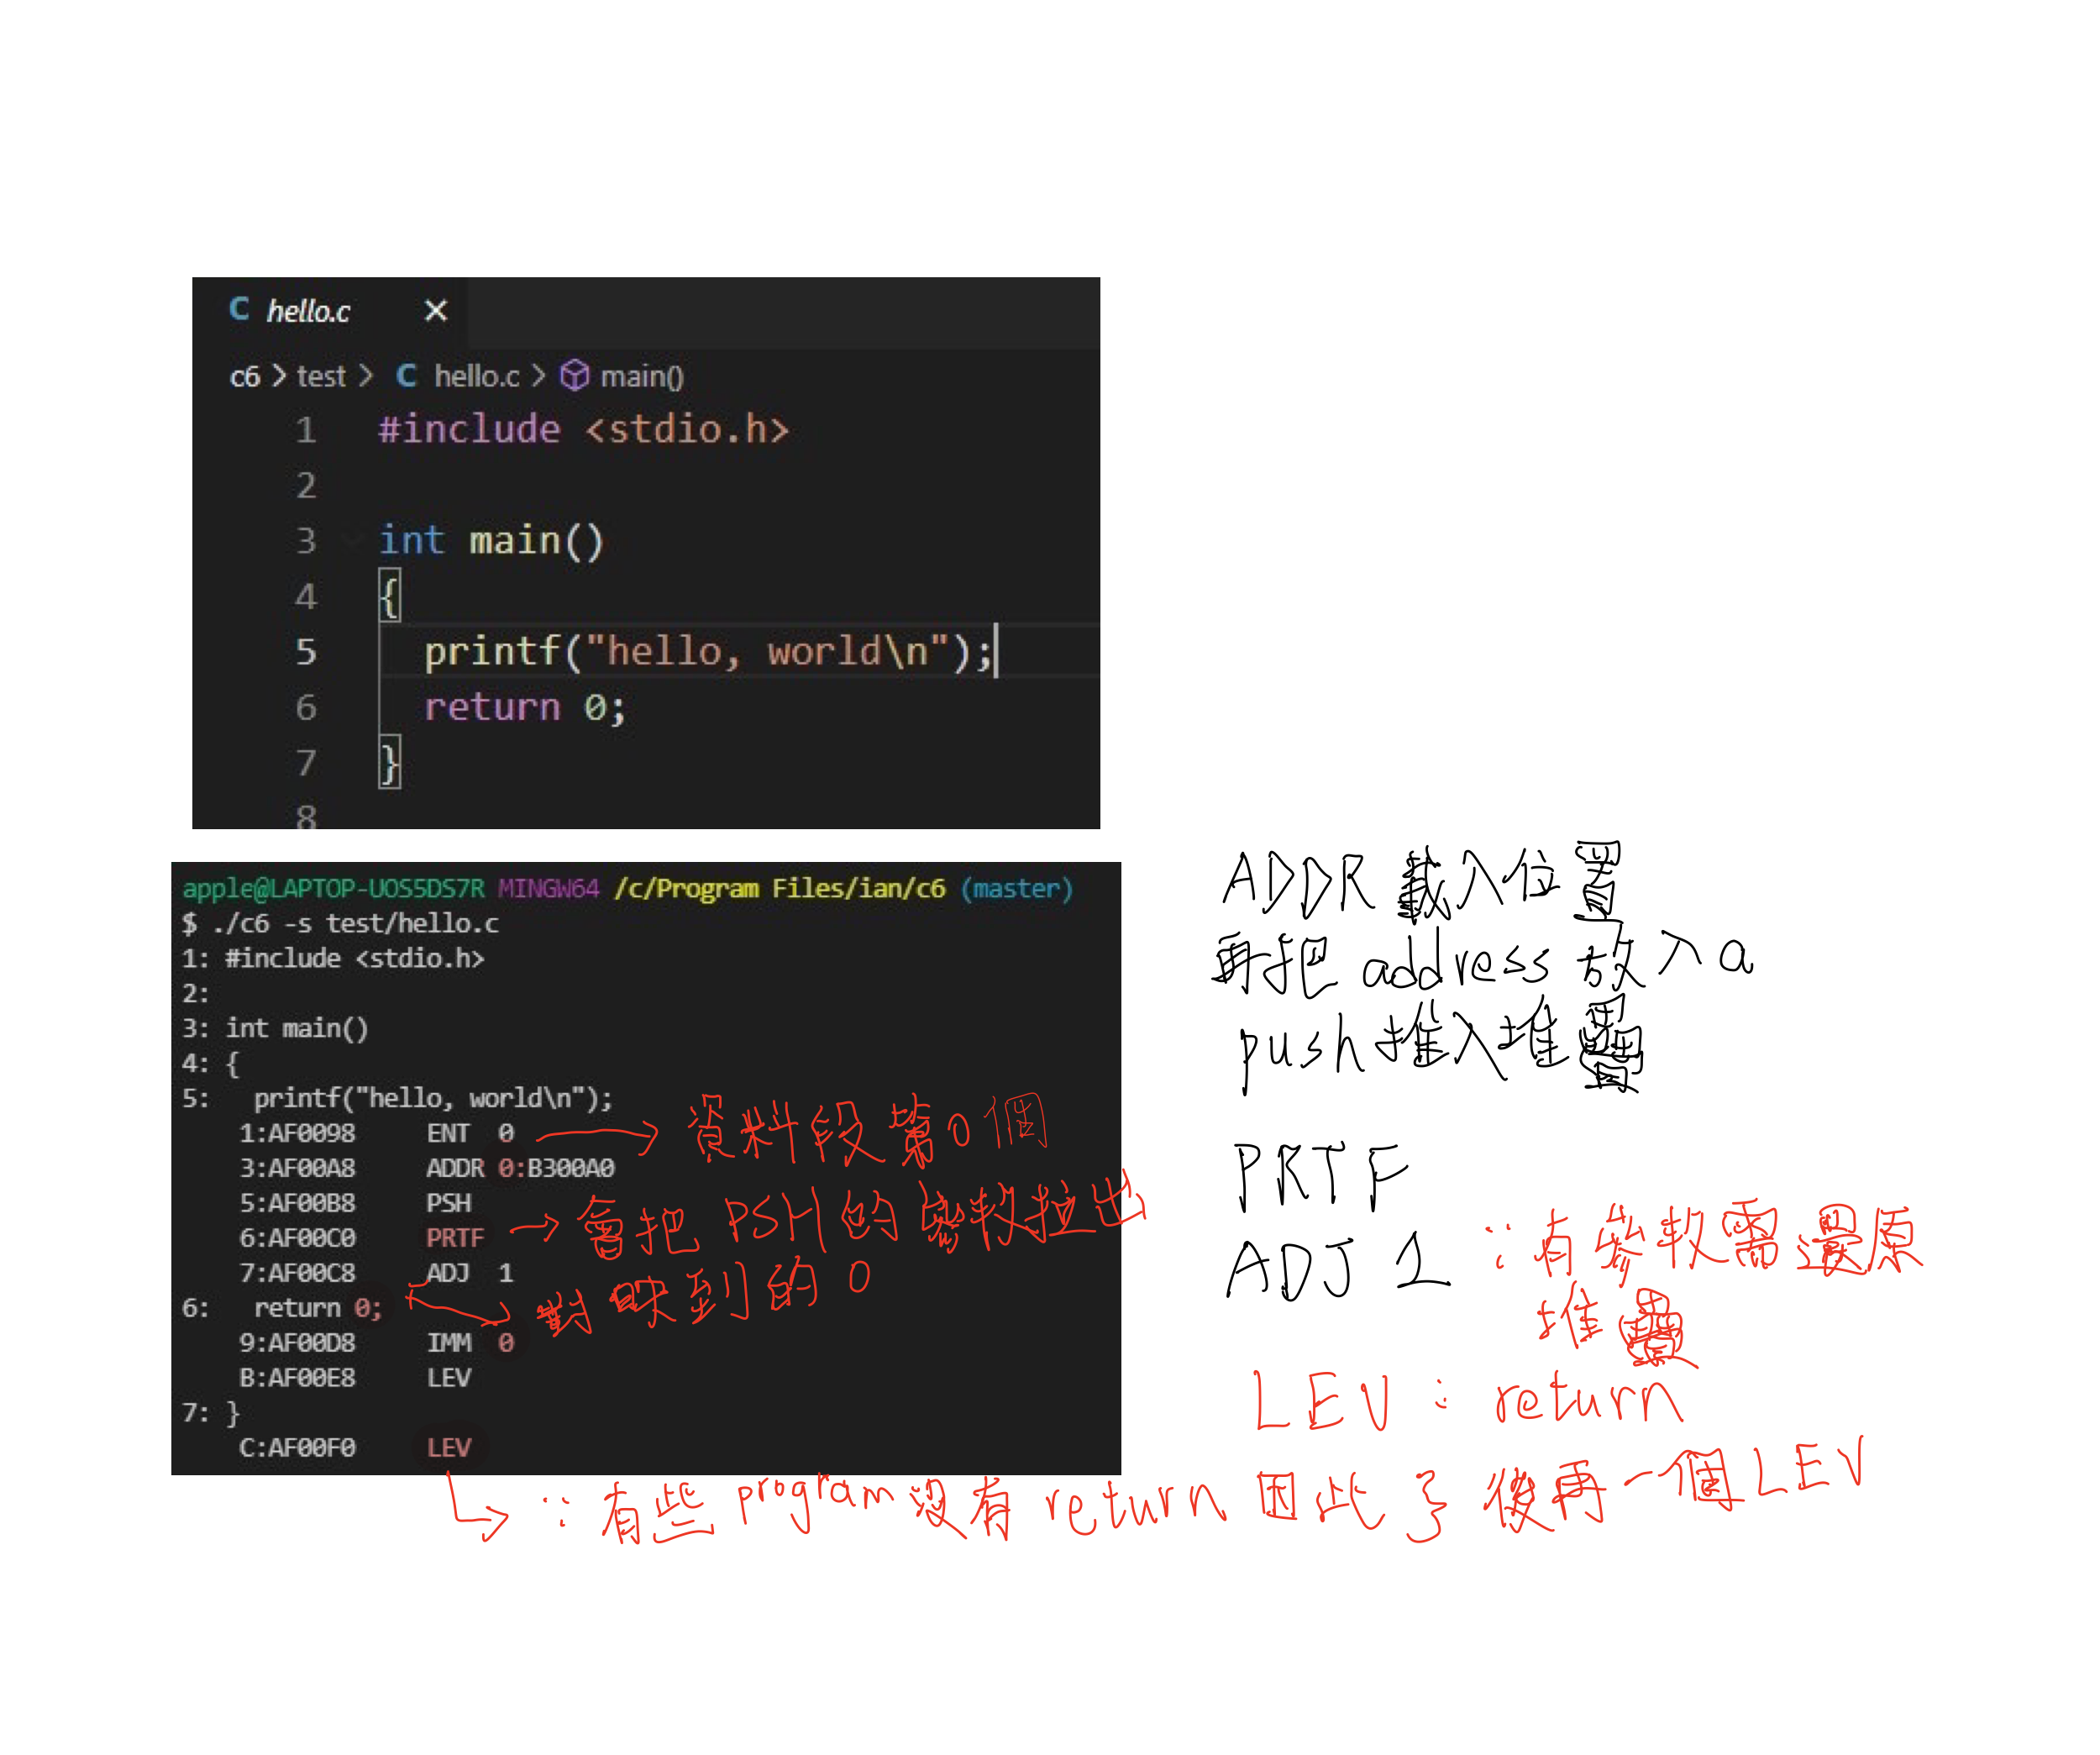 C hello.c ×
c6 > test > C hello.c > main()
1 #include <stdio.h>
2
3 int main()
4 {
5 printf("hello, world\n");
6 return 0;
7 }
8
apple@LAPTOP-UOS5DS7R MINGW64 /c/Program Files/ian/c6 (master)
$ ./c6 -s test/hello.c
1: #include <stdio.h>
2:
3: int main()
4: {
5: printf("hello, world\n");
1:AF0098 ENT 0 → 資料段第0個
3:AF00A8 ADDR 0:B300A0
5:AF00B8 PSH
6:AF00C0 PRTF → 會把PSH的參數拉出
7:AF00C8 ADJ 1
6: return 0; 對映到的0
9:AF00D8 IMM 0
B:AF00E8 LEV
7: }
C:AF00F0 LEV
∵有些program沒有return因此}後再一個LEV
ADDR 載入位置
再把address放入a
push推入堆疊
PRTF
ADJ 1 ∵有參數需還原
堆疊
LEV: return